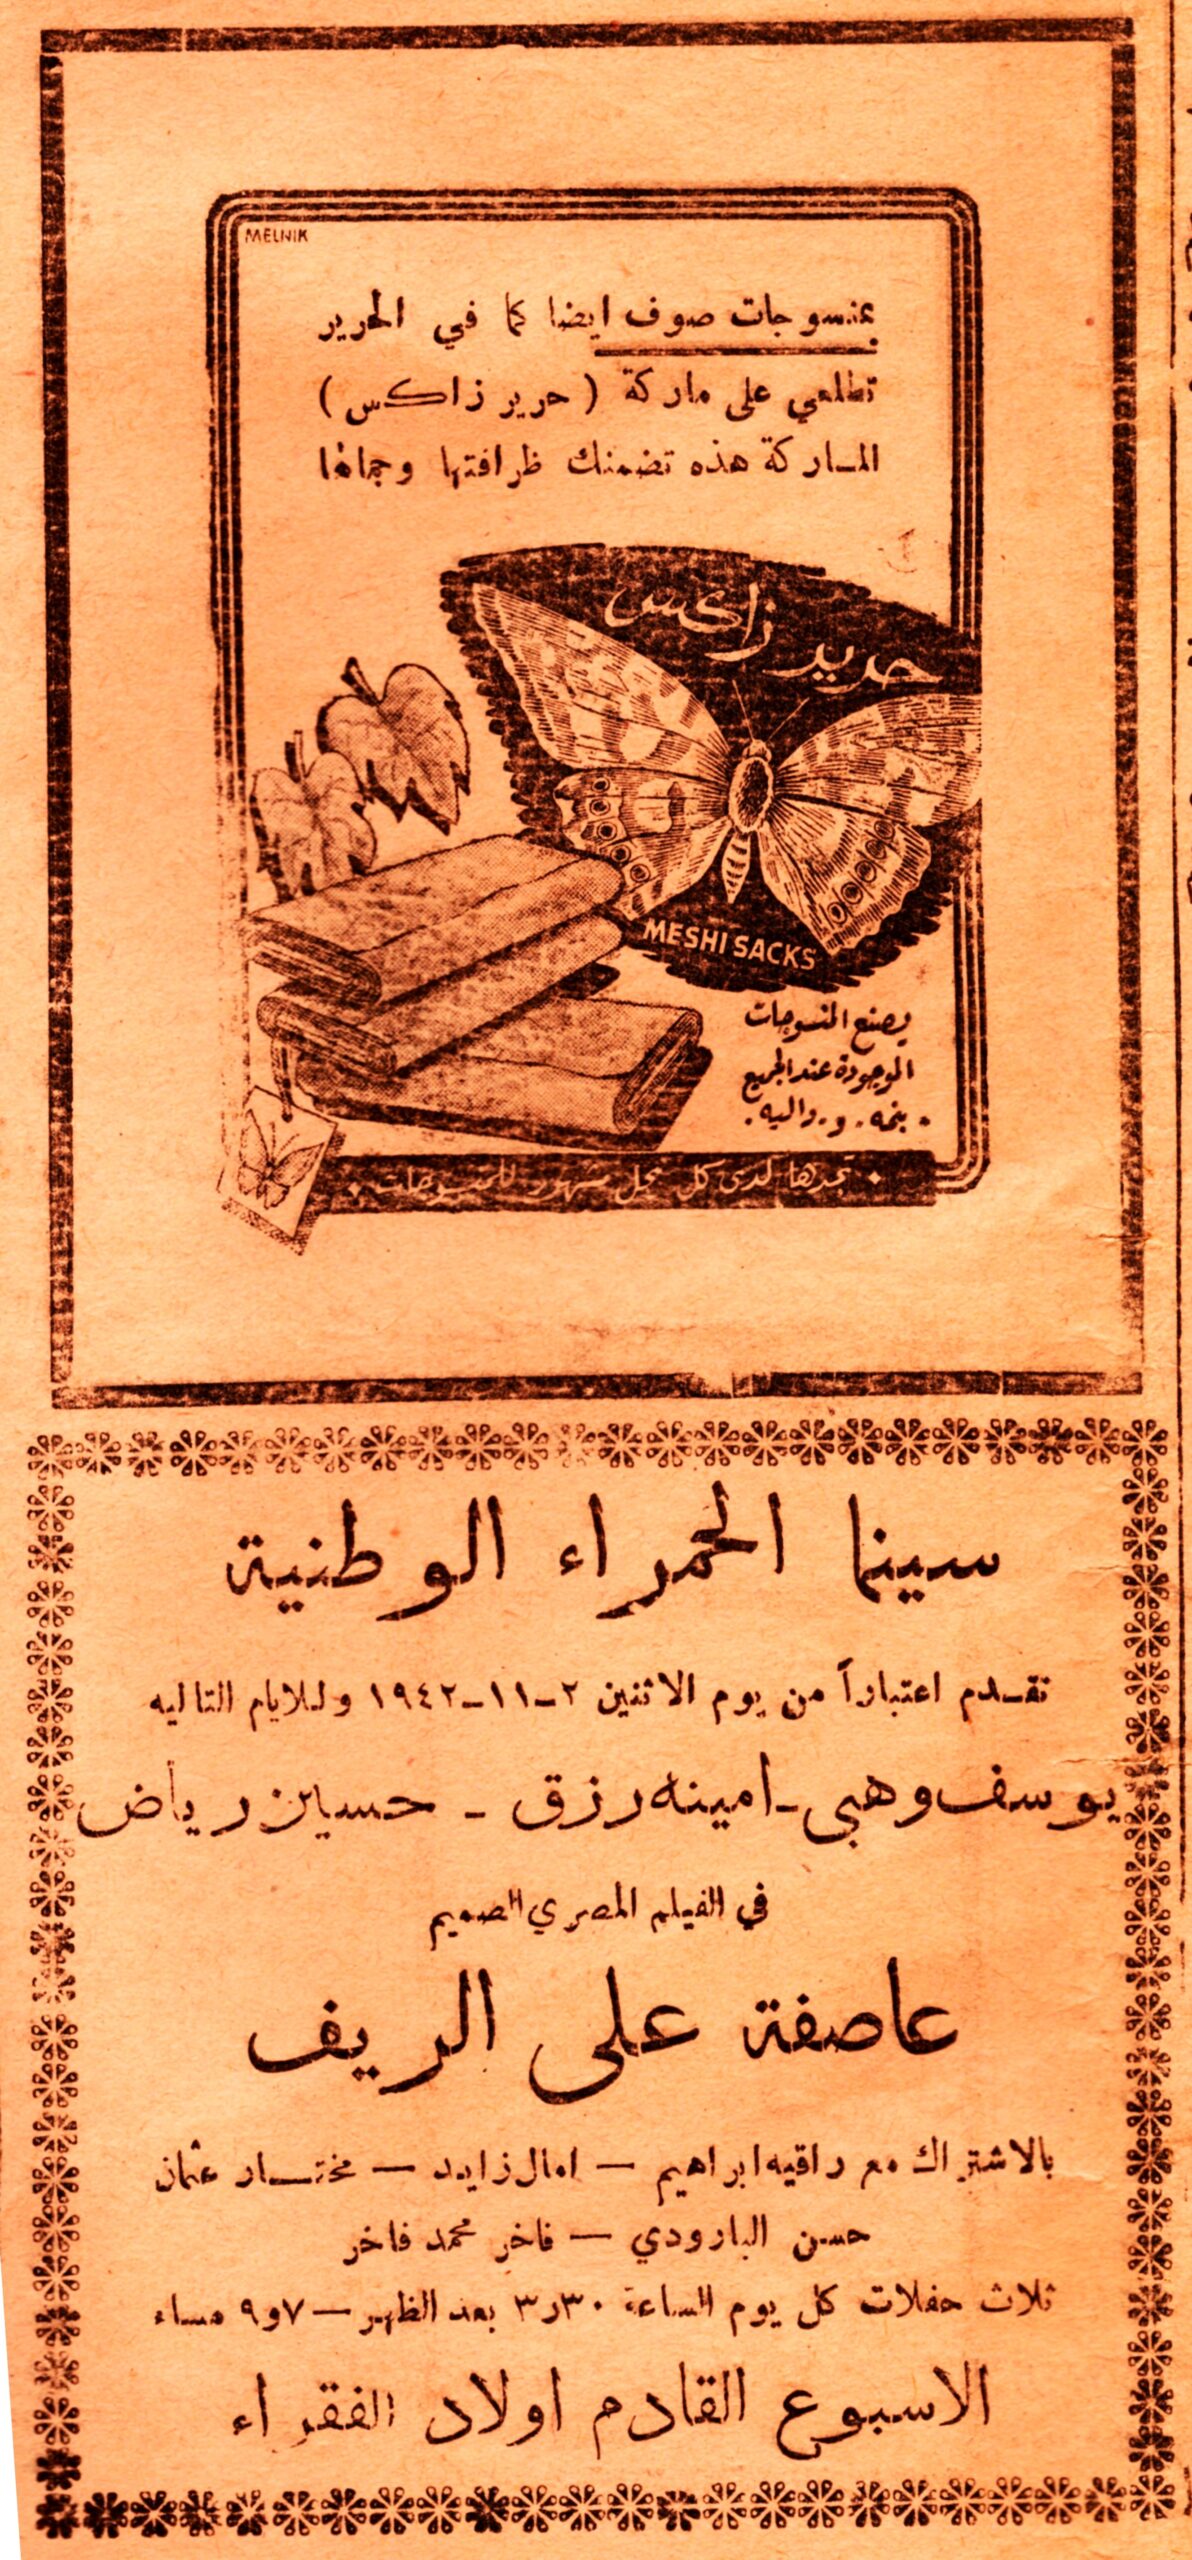 MELNIK
بمنسوجات صوف ايضا كما في الحرير
تطلعي على ماركة ( حرير زاكس )
الماركة هذه تضمنك ظرافتها وجمالها
حرير زاكس
MESHI SACKS
يصنع المنسوجات
الموجودة عند الجميع
تجدها لدى كل محل مشهور للمنسوجات
سينما الحمراء الوطنية
تقدم اعتباراً من يوم الاثنين ٢-١١-١٩٤٢ وللايام التاليه
يوسف وهبي - امينه رزق - حسين رياض
في الفيلم المصري الصميم
عاصفة على الريف
بالاشتراك مع راقيه ابراهيم — امال زايد — مختار عثمان
حسن البارودي — فاخر محمد فاخر
ثلاث حفلات كل يوم الساعة ٣٫٣٠ بعد الظهر — ٧ و ٩ مساء
الاسبوع القادم اولاد الفقراء